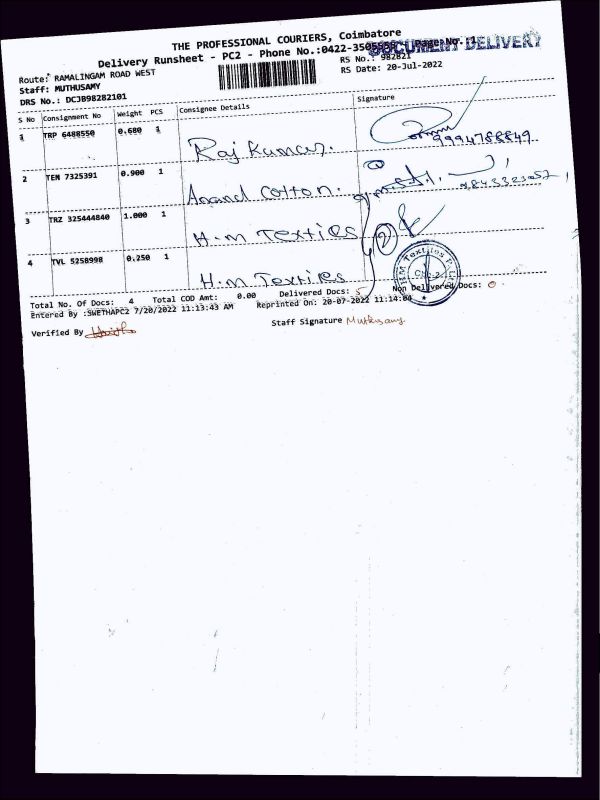 THE PROFESSIONAL COURIERS, Coimbatore
Delivery Runsheet - PC2 - Phone No.:0422-3505555 Page No.:1
DOCUMENT DELIVERY
Route: RAMALINGAM ROAD WEST
RS No.: 982821
Staff: MUTHUSAMY
RS Date: 20-Jul-2022
DRS No.: DCJB98282101
S No Consignment No Weight PCS Consignee Details Signature
1 TRP 6488550 0.680 1 Raj Kumar. 9994788849
2 TEN 7325391 0.900 1 Anand Cotton.
3 TRZ 325444840 1.000 1 H.m Textiles
4 TVL 5258998 0.250 1 H.m Textiles
Total No. Of Docs: 4 Total COD Amt: 0.00 Delivered Docs: 5 Non Delivered Docs: 0
Entered By :SWETHAPC2 7/20/2022 11:13:43 AM Reprinted On: 20-07-2022 11:14:04
Verified By
Staff Signature Muthusamy